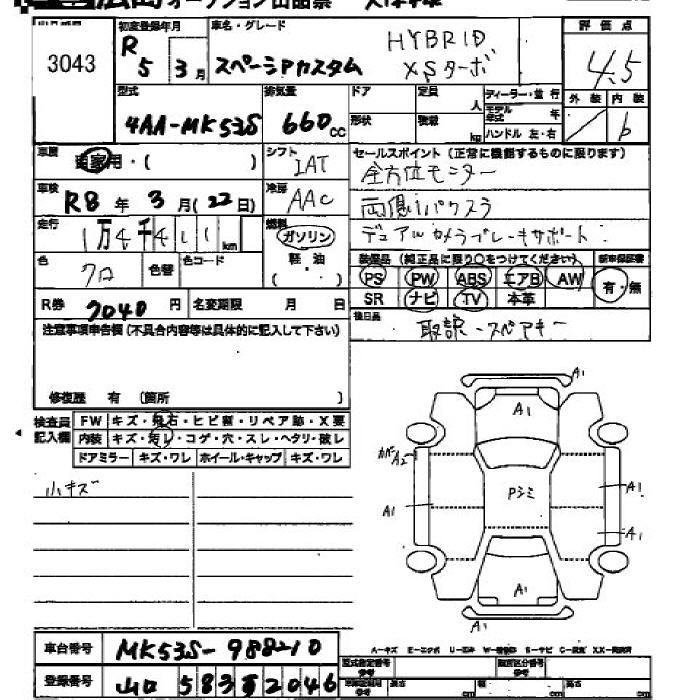 オークション出品票
3043
初度登録年月 R 5 年 3 月
車名・グレード スペーシアカスタム HYBRID XSターボ
評価点 4.5
外装 内装 b
型式 4AA-MK53S
排気量 660 cc
ドア 形状
定員 人 積載 kg
ディーラー・並行
モデル年式 年
ハンドル 左・右
車歴 自家用・( )
シフト IAT
冷房 AAC
車検 R8 年 3 月(22日)
走行 1万4千411 km
燃料 ガソリン 軽油 ( )
色 クロ 色替 色コード
R券 7040 円 名変期限 月 日
セールスポイント(正常に機能するものに限ります)
全方位モニター
両側パワスラ
デュアルカメラブレーキサポート
装備品(純正品に限り○をつけてください) 新車保証書
PS PW ABS エアB AW 有・無
SR ナビ TV 本革
後日品 取説・スペアキー
注意事項申告欄(不具合内容等は具体的に記入して下さい)
修復歴 有 (箇所 )
検査員記入欄
FW キズ・飛石・ヒビ割・リペア跡・X要
内装 キズ・汚レ・コゲ・穴・スレ・ヘタリ・破レ
ドアミラー キズ・ワレ ホイール・キャップ キズ・ワレ
小キズ
A1
A1
A2
Pシミ
A1
A1
A1
A1
A1
車台番号 MK53S-988210
登録番号 山口 583 2046
A-キズ E-エクボ U-凹ミ
型式指定番号 参考
類別区分番号 参考
長さ cm 幅 cm 高さ cm